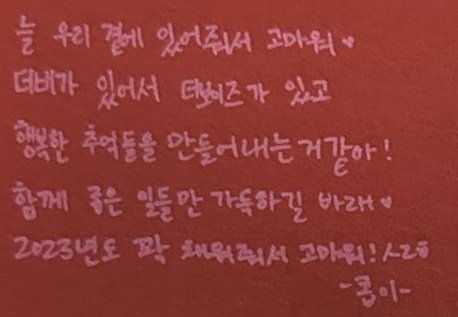 늘 우리 곁에 있어줘서 고마워♥
더비가 있어서 더보이즈가 있고
행복한 추억들을 만들어내는거같아!
함께 좋은 일들만 가득하길 바래♥
2023년도 꽉 채워줘서 고마워! 사랑해
-콩이-